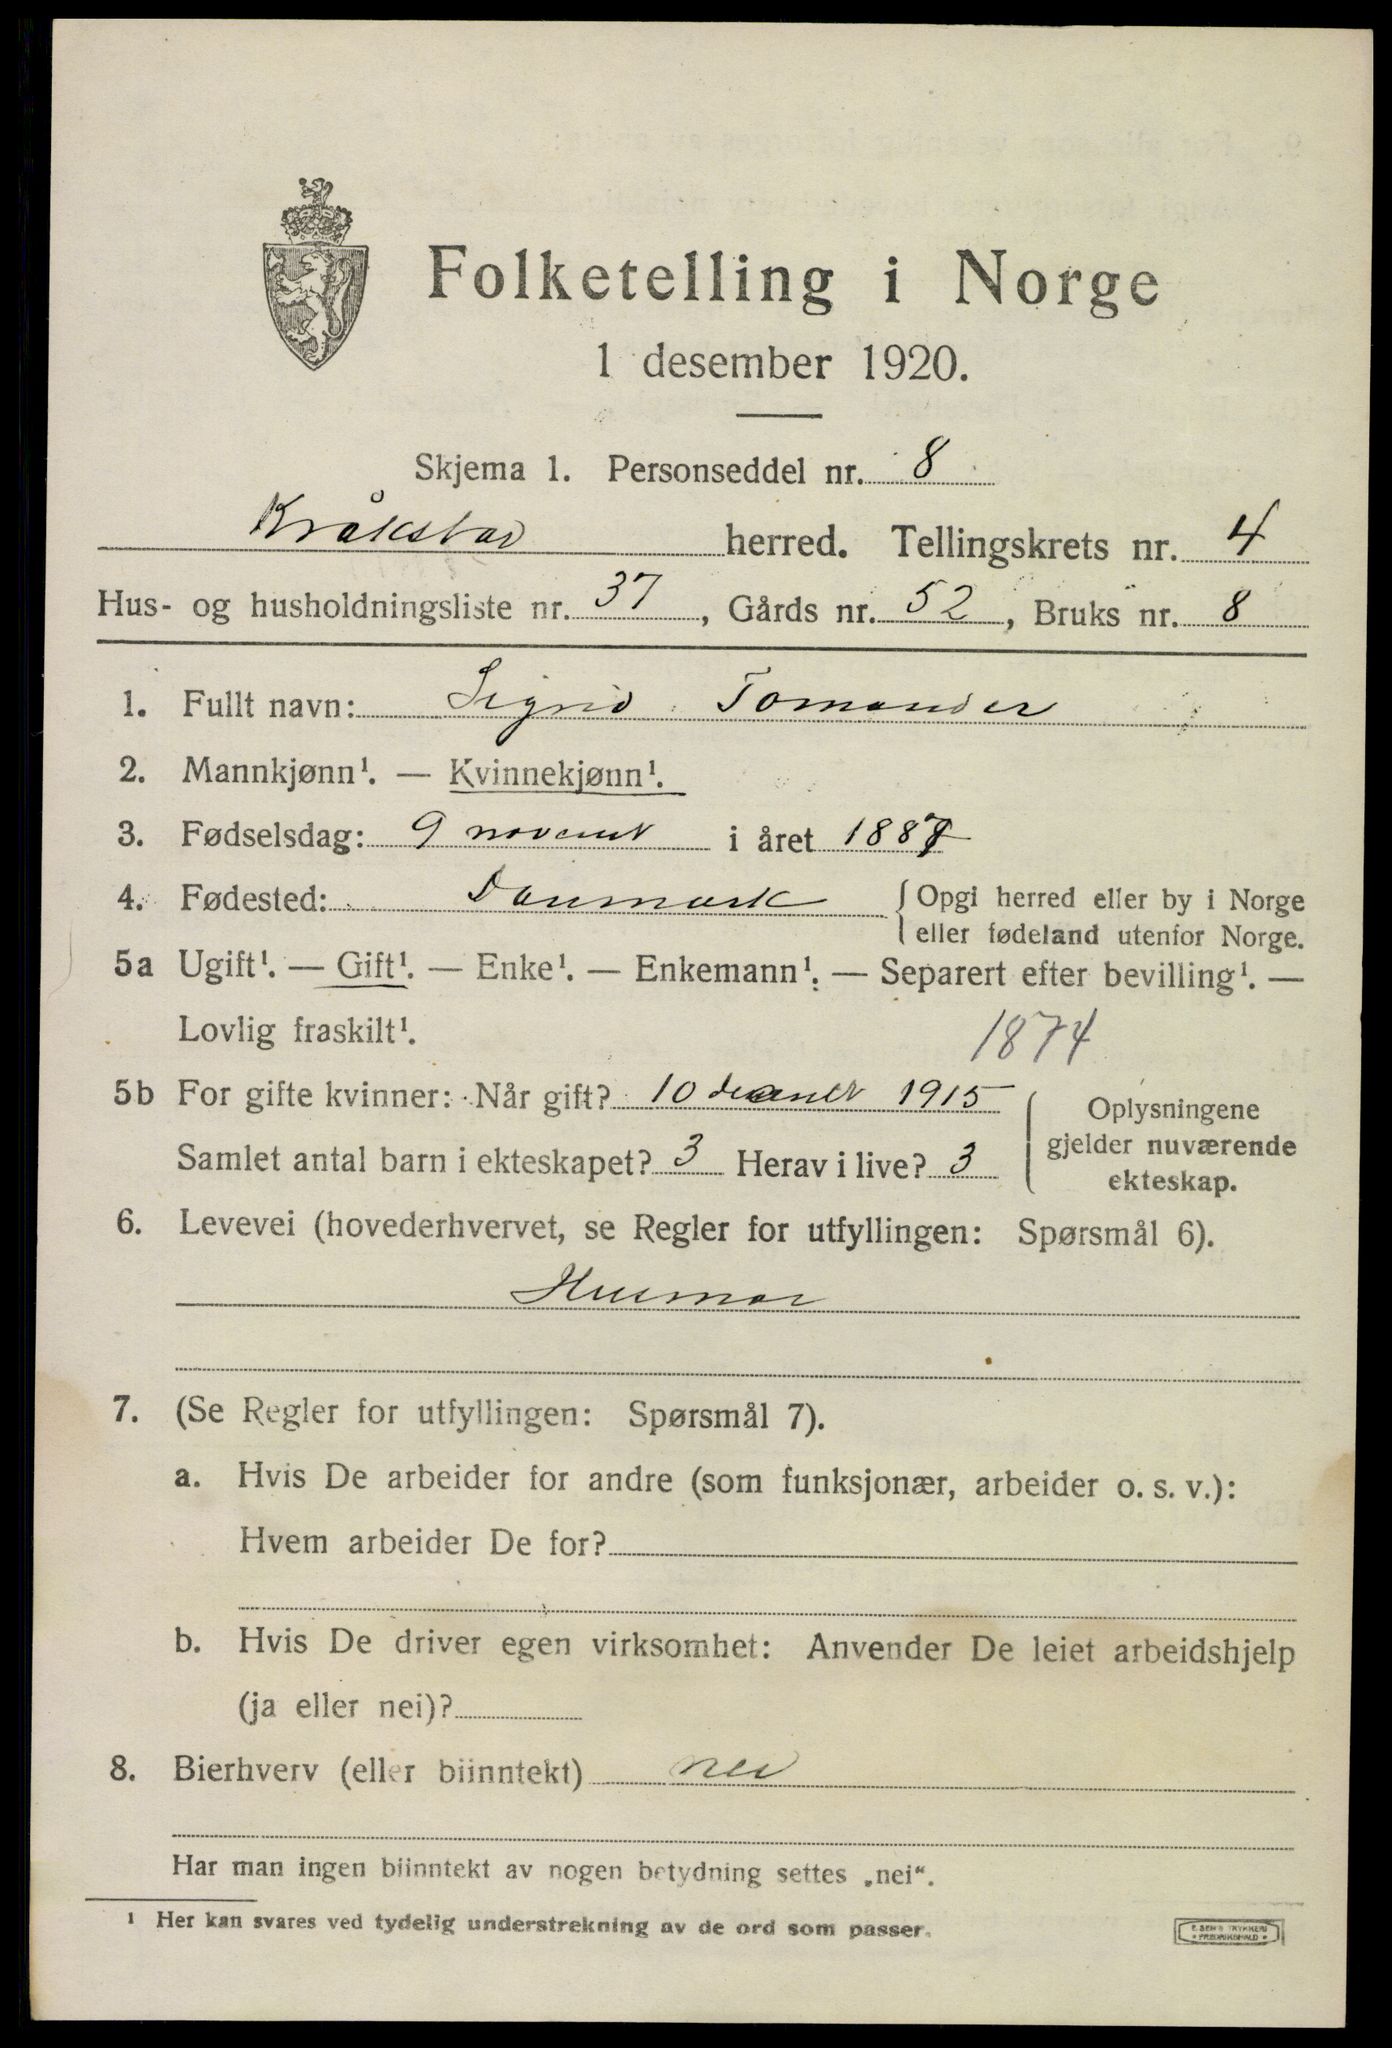 Folketelling i Norge
1 desember 1920.
Skjema 1. Personseddel nr. 8
Kråkstad herred. Tellingskrets nr. 4
Hus- og husholdningsliste nr. 37, Gårds nr. 52, Bruks nr. 8
1. Fullt navn: Sigrid Tomander
2. Mannkjønn¹. — Kvinnekjønn¹.
3. Fødselsdag: 9 novembr i året 1887
4. Fødested: Danmark { Opgi herred eller by i Norge
eller fødeland utenfor Norge.
5a Ugift¹. — Gift¹. — Enke¹. — Enkemann¹. — Separert efter bevilling¹. —
Lovlig fraskilt¹.
1874
5b For gifte kvinner: Når gift? 10 1915
Samlet antal barn i ekteskapet? 3 Herav i live? 3
Oplysningene
gjelder nuværende
ekteskap.
6. Levevei (hovederhvervet, se Regler for utfyllingen: Spørsmål 6).
Husmor
7. (Se Regler for utfyllingen: Spørsmål 7).
a. Hvis De arbeider for andre (som funksjonær, arbeider o. s. v.):
Hvem arbeider De for?
b. Hvis De driver egen virksomhet: Anvender De leiet arbeidshjelp
(ja eller nei)?
8. Bierhverv (eller biinntekt) nei
Har man ingen biinntekt av nogen betydning settes „nei“.
¹ Her kan svares ved tydelig understrekning av de ord som passer.
E. SEM'S TRYKKERI
FREDRIKSHALD